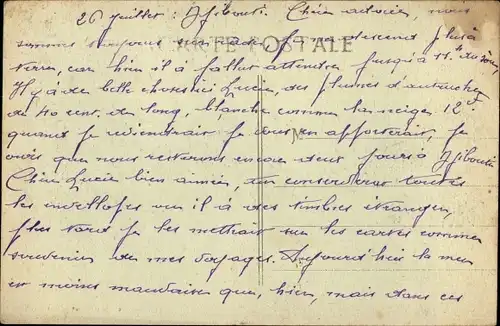 26 juillet : Djibouti. Chère adorée, nous
sommes toujours en rade, je ne descend plus à
terre, car hier il à fallut attendre jusqu'à 11h du soir
CARTE POSTALE
Il y a de belle choses ici Lucie, des plumes d'autruches
de 40 cent. de long, blanche comme la neige 12f
quand je reviendrai je vous en apporterait, je
crois que nous resterons encore deux jours à Djibouti
Chère Lucie bien aimée, tu conserveras toutes
les envellopes où il à des timbres étranger,
plus tard je les mettrait sur les cartes comme
souvenir de mes voyages. Aujourd'hui la mer
est moins mauvaise que hier, mais dans ces